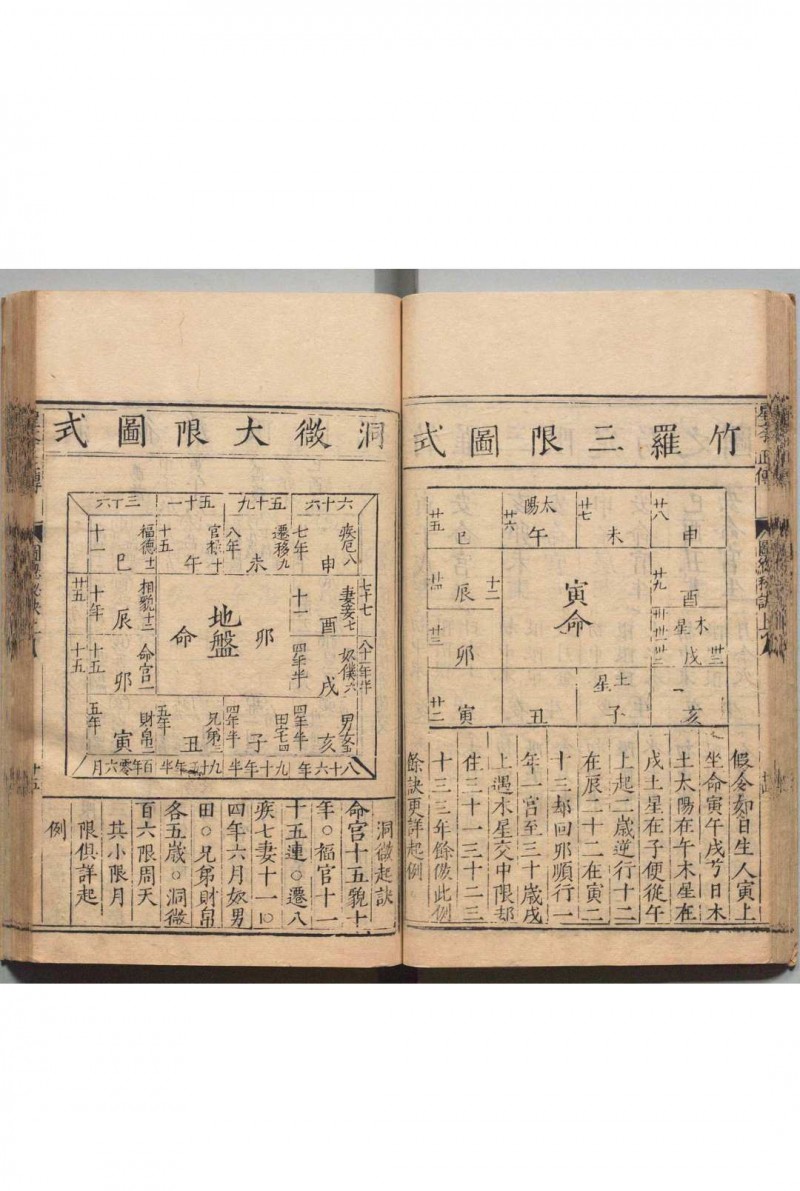 竹羅三限圖式
申
廿八
未
廿七
太陽
午
廿六
巳
廿五
酉
廿九
木星
戌
卅 卅一 卅二
卅三
寅命
十二
辰
廿四
卯
廿三
亥
一
土星
子
丑
寅
廿二
假令如日生人寅上
坐命寅午戌芍日木
土太陽在午木星在
戌土星在子便從午
上起二歲逆行十二
在辰二十二在寅二
十三却回夘順行一
年一宮至三十歲戌
上遇木星交中限却
住三十一三十二三
十三三年餘倣此例
餘訣更詳起例
洞微大限圖式
六十六
五十九
五十一
三丁六
疾厄八
七年
申
遷移九
八年
未
官祿十
十五
午
福德十一
十一
巳
七十七
妻妾七
十一
酉
八十一年半
奴僕六
四年半
戌
地盤
卯
命
相貌十二
十年
辰
廿五
命宮一
十五
卯
十五
男女五
四年半
亥
田宅四
四年半
子
兄弟三
五年
丑
財帛二
五年
寅
八十六年
九十年半
九十五年半
百年零六月
洞微起訣
命宮十五貌十
年○福官十一
十五連○遷八
疾七妻十一○
四年六月奴男
田○兄弟財帛
各五歲○洞微
百六限周天
其小限月
限俱詳起
例
十五